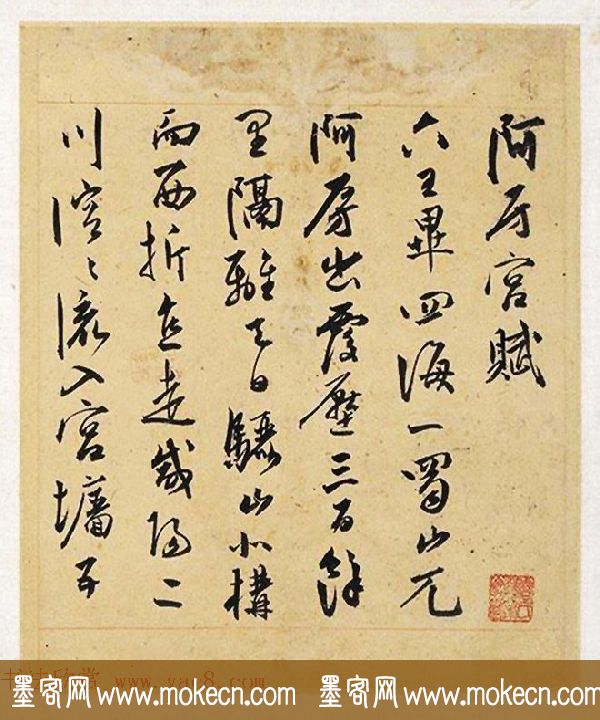 阿房宮賦
六王畢四海一蜀山兀
阿房出覆壓三百餘
里隔離天日驪山北構
而西折直走咸陽二
川溶〻流入宮牆五
书法欣赏 www.yac8.com
墨客网 www.mokecn.com 墨客网 www.mokecn.com